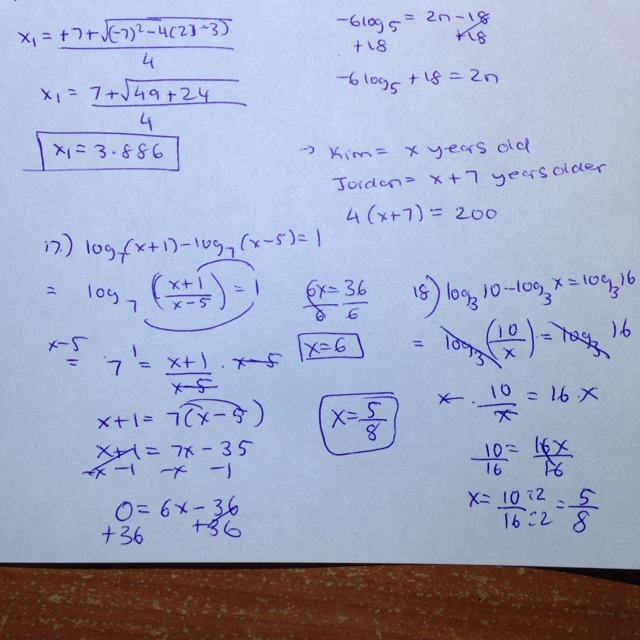 x₁ = +7+√(-7)²-4(2)(-3) / 4
x₁ = 7+√49+24 / 4
x₁ = 3.886
-6log₅ = 2n-18
+18 +18
-6log₅ +18 = 2n
→ Kim = x years old
Jordan = x+7 years older
4(x+7) = 200
17.) log₇(x+1)-log₇(x-5)=1
= log₇ (x+1 / x-5) = 1
x-5 = 7¹ = x+1 / x-5 · x-5
x+1 = 7(x-5)
x+1 = 7x - 35
-x -1 -x -1
0 = 6x - 36
+36 +36
6x = 36
6 6
x=6
x = 5/8
18) log₃10-log₃x=log₃16
= log₃ (10/x) = log₃ 16
x · 10/x = 16·x
10/16 = 16x/16
x = 10÷2 / 16÷2 = 5/8